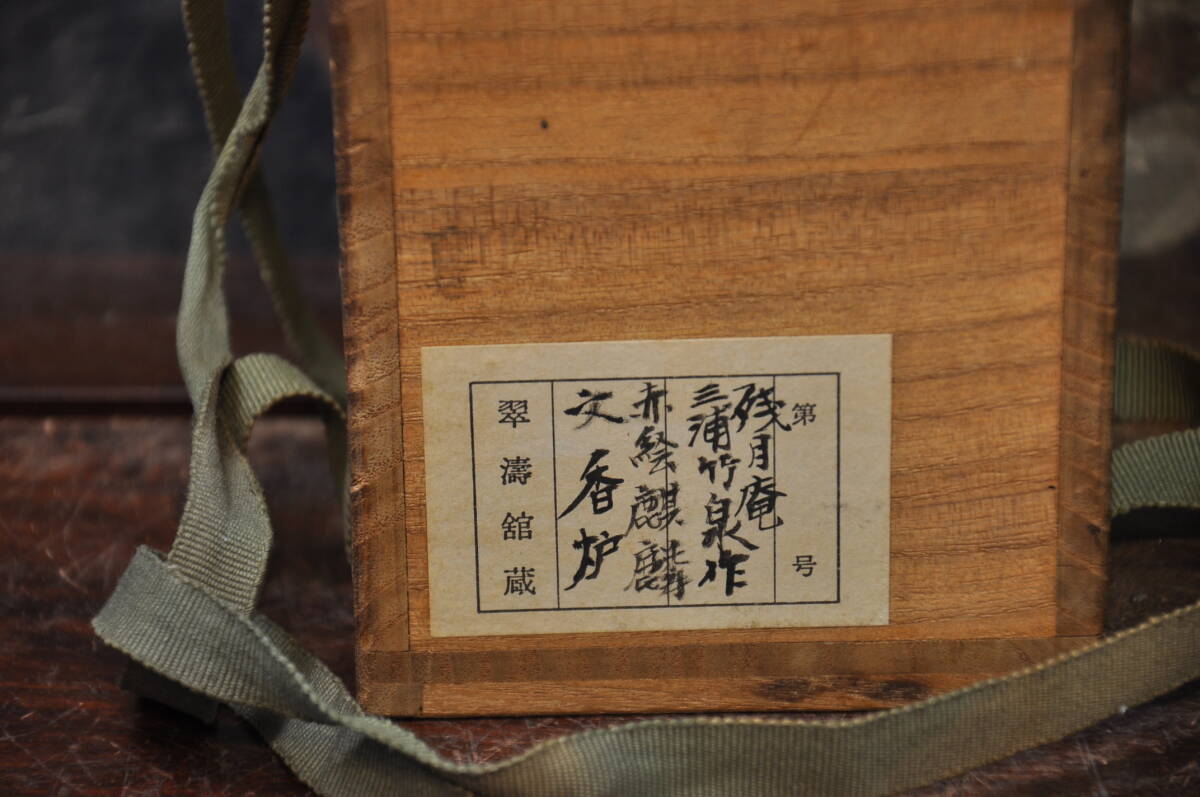 第 号
残月庵
三浦竹泉作
赤絵麒麟
文香炉
翠濤舘蔵